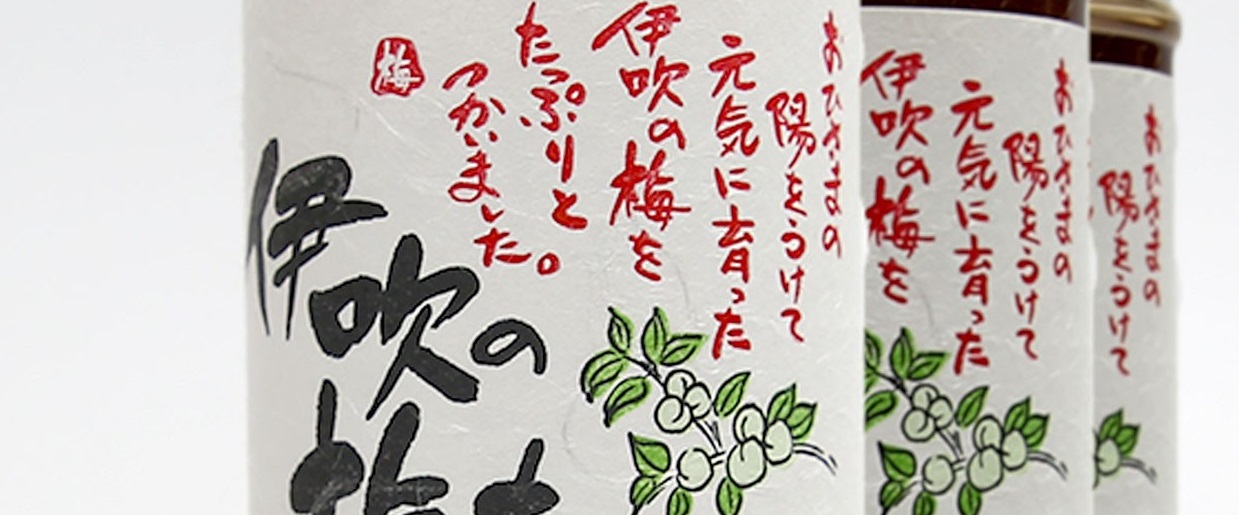 おひさまの
陽をうけて
元気に育った
伊吹の梅を
たっぷりと
つかいました。
梅
伊吹の
梅
おひさまの
陽をうけて
元気に育った
伊吹の梅を
おひさまの
陽をうけて